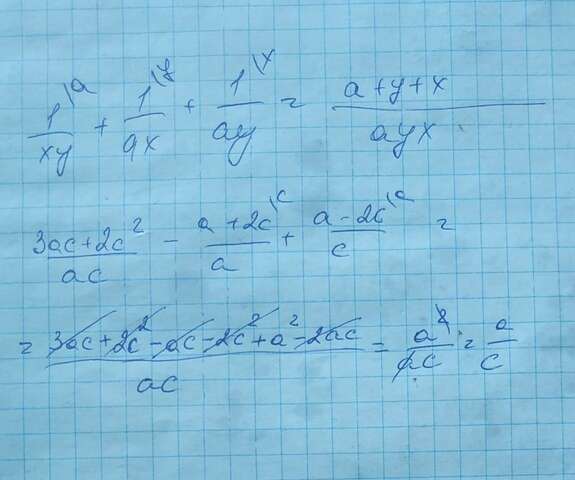 1\a/xy + 1\y/ax + 1\x/ay = a+y+x/ayx
3ac+2c²/ac - a+2c\c/a + a-2c\a/c =
= 3ac+2c²-ac-2c²+a²-2ac/ac = a²/ac = a/c